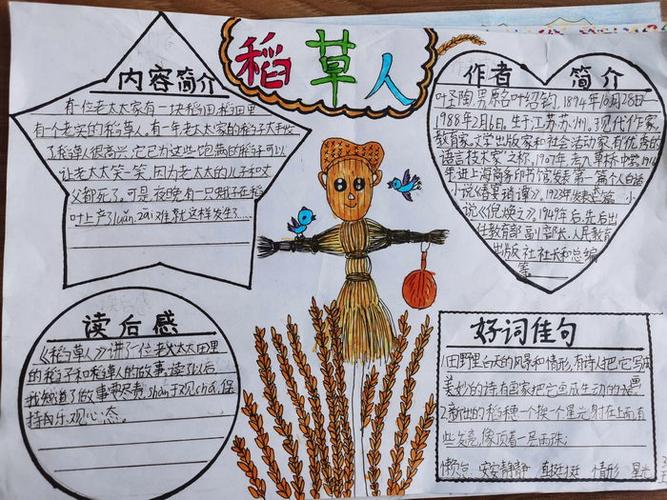 稻草人
内容简介
有位老太太家有一块稻田,稻田里
有个老实的稻草人,有一年老太太家的稻子大丰收
了稻草人很高兴,它已为这些饱满的稻子可以
让老太太笑一笑,因为老太太的儿子和丈
父都死了。可是,夜晚有一只蛾子在稻
叶上产了luan,zāi难就这样发生了……
作者 简介
叶圣陶,男,原名叶绍钧,1894年10月28日一
1988年2月16日。生于江苏苏州。现代作家、
教育家、文学出版家和社会活动家,有优秀的
语言技术家"之称,1907年考入草桥中学,1916
年进上海商务印书馆发表第一篇个人白话
小说
小说《倪焕之》,1949年后,先后出
任教育部副部长,人民教育
出版社社长和总编
等
读后感
《稻草人》讲了一位老太太田里
的稻子和稻草人的故事,读了以后
我知道了做事要尽责,shan于观chá,保
持快乐、观心态。
好词佳句
1.田野里白天的风景和情形,有诗人把它写成
美妙的诗,有画家把它画成生动的画
2.新出的稻穗一个挨一个,星光射在上面,有
些发亮,像顶着一层雨珠;
懒怠 安安静静 直挺挺 情形 星光